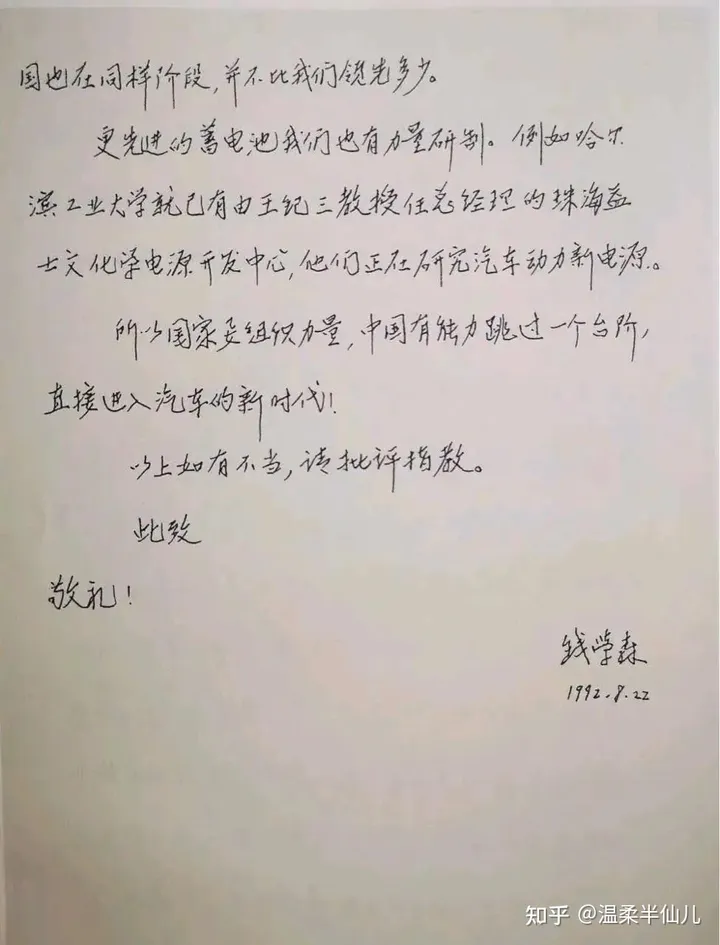 国也在同样阶段，并不比我们领先多少。
更先进的蓄电池我们也有力量研制。例如哈尔
滨工业大学就已有由王纪三教授任总经理的珠海益
士文化学电源开发中心，他们正在研究汽车动力新电源。
所以国家要组织力量，中国有能力跳过一个台阶，
直接进入汽车的新时代！
以上如有不当，请批评指教。
此致
敬礼！
钱学森
1992.8.22
知乎 @温柔半仙儿